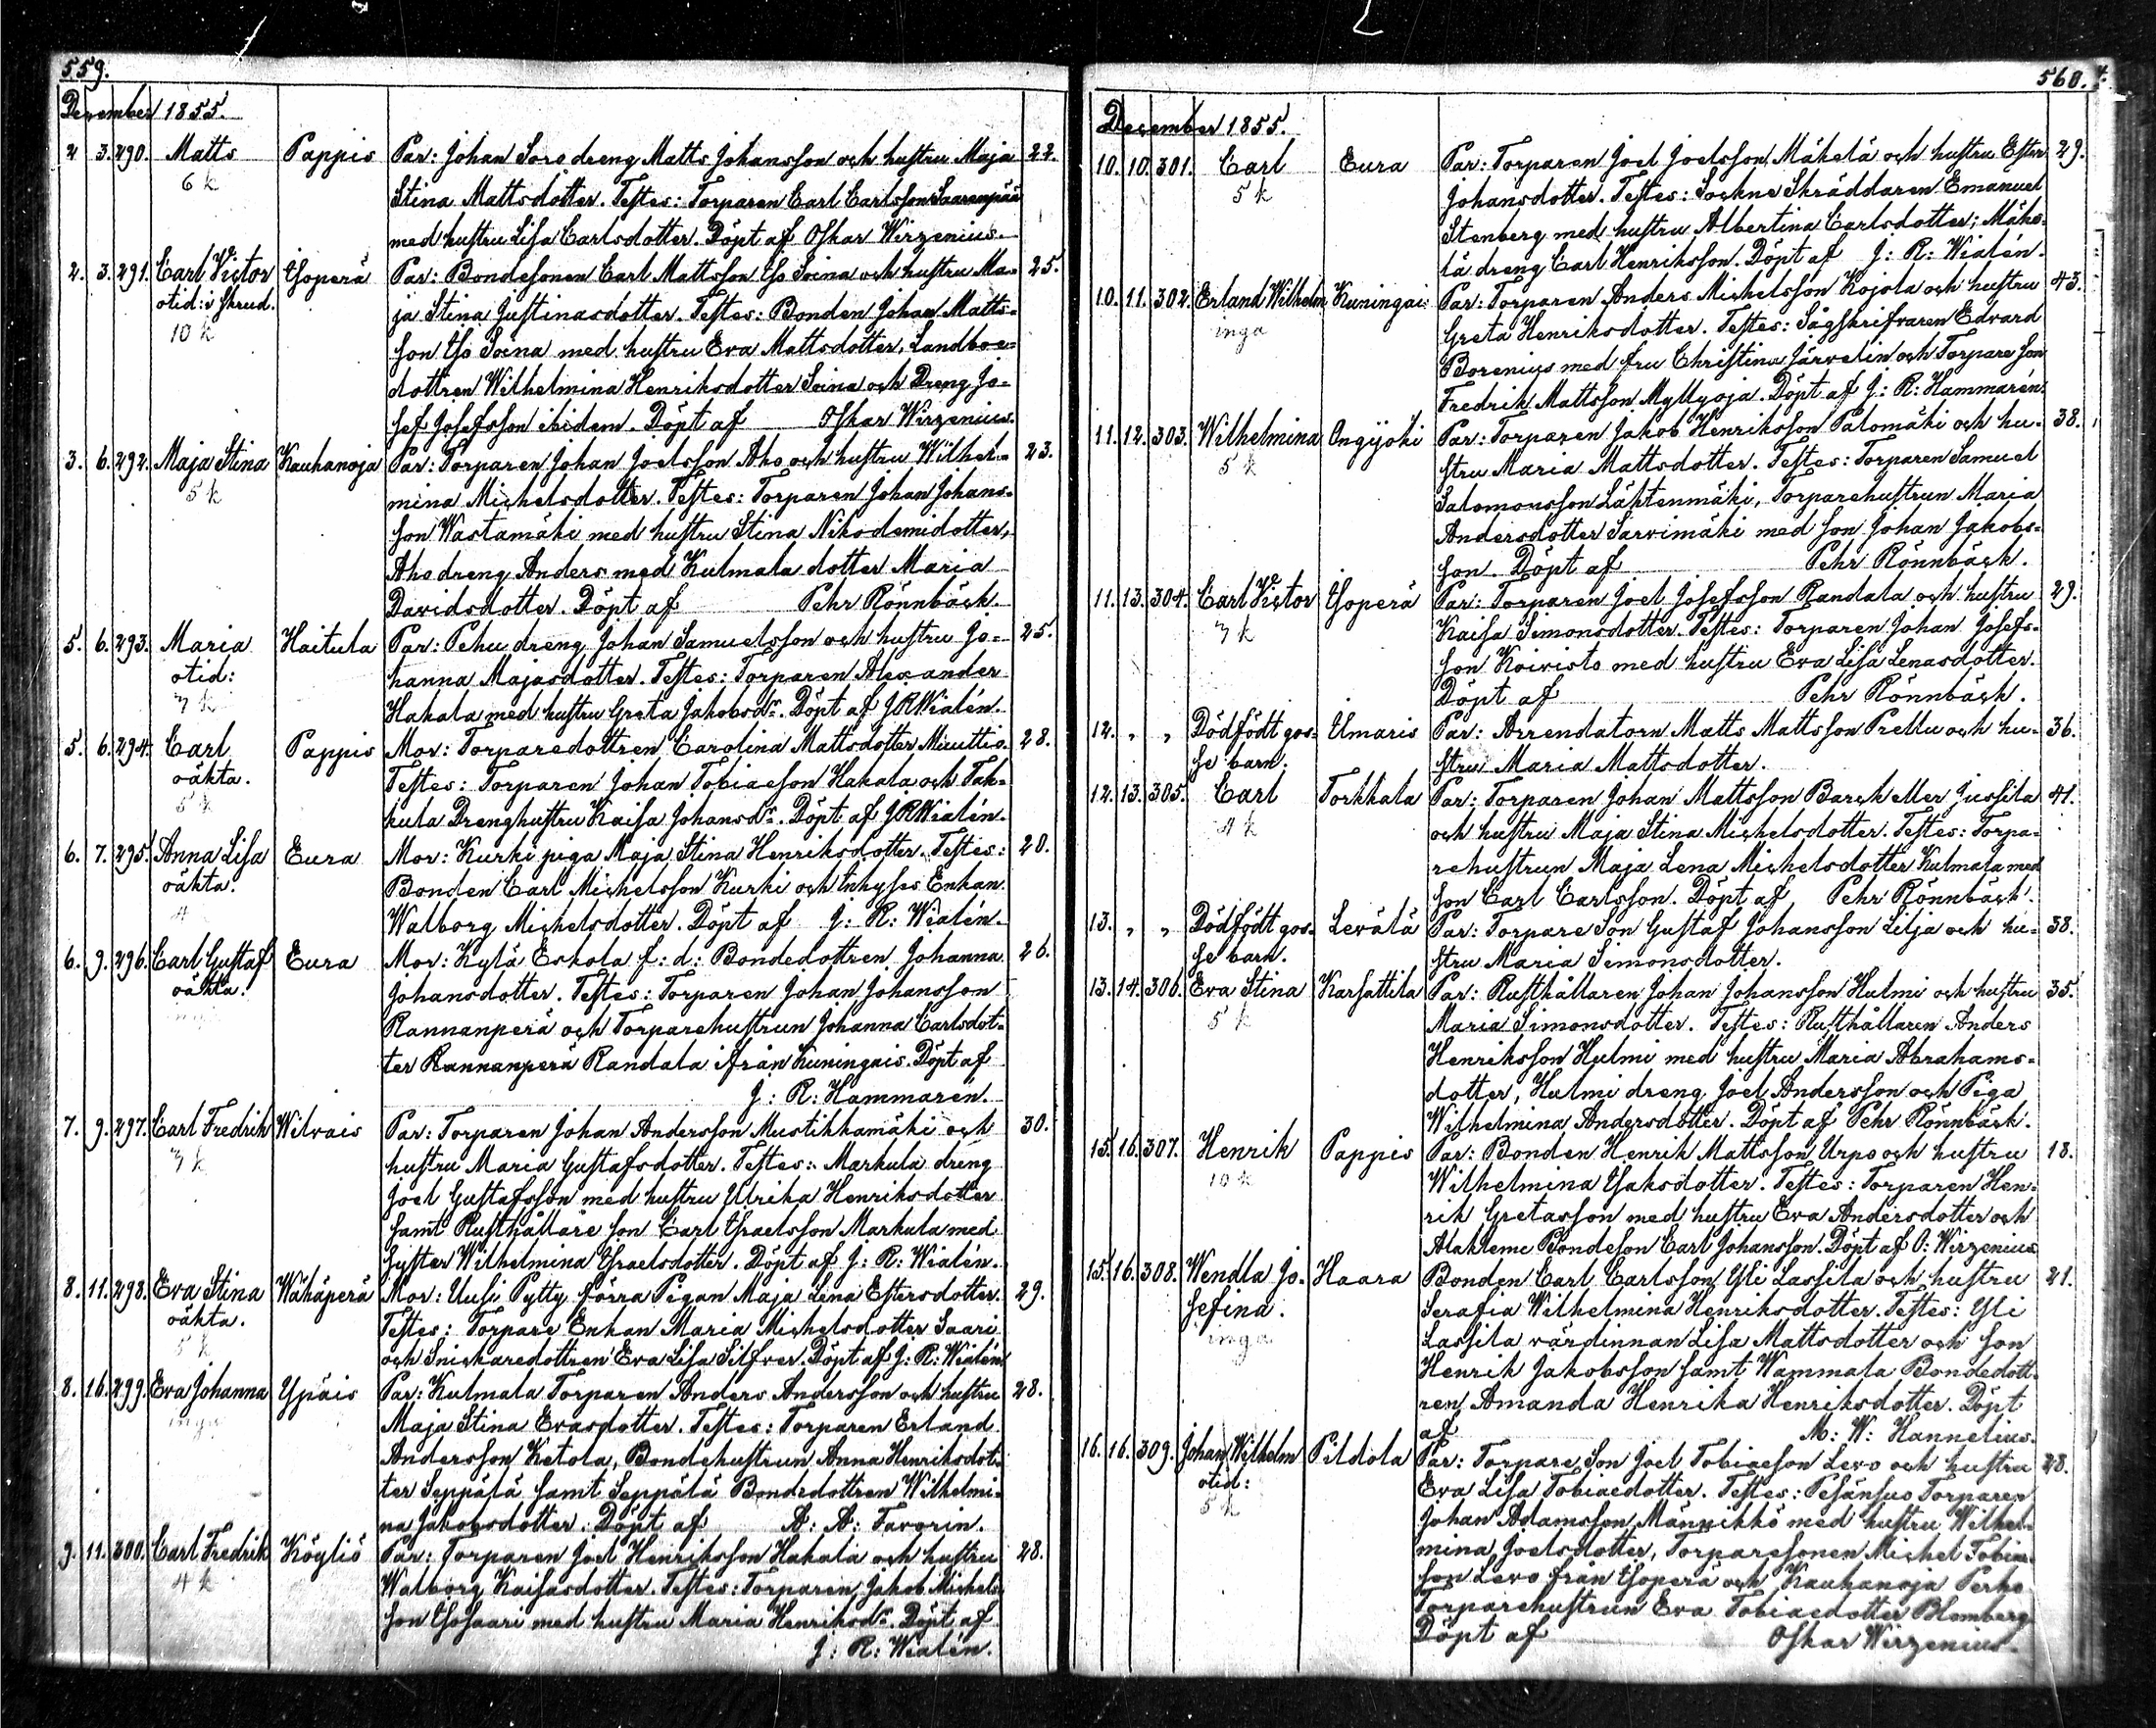 559.
December 1855.
2 3. 290. Matts Pappis Par: Johan Soro dreng Matts Johansson och hustru Maja 22.
6 k Stina Mattsdotter. Testes: Torparen Carl Carlsson Saarenpää
med hustru Lisa Carlsdotter. Döpt af Oskar Wirzenius.
2. 3. 291. Carl Victor Isoperä Par: Bondesonen Carl Mattsson Iso Soina och hustru Ma- 25.
otid: i Skrud. ja Stina Justinasdotter. Testes: Bonden Johan Matts-
10 k son Iso Soina med hustru Eva Mattsdotter, Landboe-
dottren Wilhelmina Henriksdotter Soina och Dreng Jo-
sef Josefsson ibidem. Döpt af Oskar Wirzenius.
3. 6. 292. Maja Stina Kauhanoja Par: Torparen Johan Joelsson Aho och hustru Wilhel- 23.
5 k mina Michelsdotter. Testes: Torparen Johan Johans-
son Wastamäki med hustru Stina Nikodemidotter,
Aho dreng Anders med Kulmala dotter Maria
Davidsdotter. Döpt af Pehr Rönnbäck.
5. 6. 293. Maria Haitula Par: Pehu dreng Johan Samuelsson och hustru Jo- 25.
otid: hanna Majasdotter. Testes: Torparen Alexander
7 k Hakala med hustru Greta Jakobsdr. Döpt af J R Wialén.
5. 6. 294. Carl Pappis Mor: Torparedottren Carolina Mattsdotter Minuttis. 28.
oäkta. Testes: Torparen Johan Tobiaeson Hakala och Tak-
5 k kula Drenghustru Kaisa Johansdr. Döpt af J R Wialén.
6. 7. 295. Anna Lisa Eura Mor: Kurki piga Maja Stina Henriksdotter. Testes: 20.
oäkta. Bonden Carl Michelsson Kurki och Inhyses Enkan
4 Walborg Michelsdotter. Döpt af J: R: Wialén.
6. 9. 296. Carl Gustaf Eura Mor: Kylä Eskola f: d: Bondedottren Johanna 26.
oäkta. Johansdotter. Testes: Torparen Johan Johansson
Rannanperä och Torparehustrun Johanna Carlsdot-
ter Rannanperä Randala ifrån Kuningais. Döpt af
J: R: Hammarén.
7. 9. 297. Carl Fredrik Wilvais Par: Torparen Johan Andersson Mustikkamäki och 30.
7 k hustru Maria Gustafsdotter. Testes: Markula dreng
Joel Gustafsson med hustru Ulrika Henriksdotter
samt Rusthållare son Carl Israelsson Markula med
syster Wilhelmina Israelsdotter. Döpt af J: R: Wialén.
8. 11. 298. Eva Stina Wähäperä Mor: Uusi Pytty förra Pigan Maja Lena Estersdotter. 29.
oäkta. Testes: Torpare Enkan Maria Michelsdotter Saari
5 k och Snickaredottren Eva Lisa Silfver. Döpt af J: R: Wialén
8. 16. 299. Eva Johanna Ypäis Par: Kulmala Torparen Anders Andersson och hustru 28.
inga Maja Stina Evasdotter. Testes: Torparen Erland
Andersson Ketola, Bondehustrun Anna Henriksdot-
ter Seppälä samt Seppälä Bondedottren Wilhelmi-
na Jakobsdotter. Döpt af A: A: Favorin.
9. 11. 300. Carl Fredrik Köyliö Par: Torparen Joel Henriksson Hakala och hustru 28.
4 k Walborg Kaisasdotter. Testes: Torparen Jakob Michels-
son Isosaari med hustru Maria Henriksdr. Döpt af
J: R: Wialén.
560.
December 1855.
10. 10. 301. Carl Eura Par: Torparen Joel Joelsson Mäkelä och hustru Ester 29.
5 k Johansdotter. Testes: Sockne Skräddaren Emanuel
Stenberg med hustru Albertina Carlsdotter; Mäke-
lä dreng Carl Henriksson. Döpt af J: R: Wialén.
10. 11. 302. Erland Wilhelm Kuningais Par: Torparen Anders Michelsson Kojola och hustru 43.
inga Greta Henriksdotter. Testes: Sågskrifvaren Edvard
Borenius med fru Christina Järvelin och Torpare son
Fredrik Mattsson Myllyoja. Döpt af J: R: Hammarén.
11. 12. 303. Wilhelmina Ongijoki Par: Torparen Jakob Henriksson Palomäki och hu- 38.
5 k stru Maria Mattsdotter. Testes: Torparen Samuel
Salomonsson Lähtenmäki, Torparehustrun Maria
Andersdotter Sarvimäki med son Johan Jakobs-
son. Döpt af Pehr Rönnbäck.
11. 13. 304. Carl Victor Isoperä Par: Torparen Joel Josefsson Randala och hustru 29.
7 k Kaisa Simonsdotter. Testes: Torparen Johan Josefs-
son Koivisto med hustru Eva Lisa Lenasdotter.
Döpt af Pehr Rönnbäck.
12. „ „ Dödfödt gos- Umaris Par: Arrendatorn Matts Mattsson Prellu och hu- 36.
se barn. stru Maria Mattsdotter.
12. 13. 305. Carl Torkkala Par: Torparen Johan Mattsson Barck eller Jussila 41.
4 k och hustru Maja Stina Michelsdotter. Testes: Torpa-
rehustrun Maja Lena Michelsdotter Kulmala med
son Carl Carlsson. Döpt af Pehr Rönnbäck.
13. „ „ Dödfödt gos- Levälä Par: Torpare Son Gustaf Johansson Lilja och hu- 38.
se barn. stru Maria Simonsdotter.
13. 14. 306. Eva Stina Karsattila Par: Rusthållaren Johan Johansson Hulmi och hustru 35.
5 k Maria Simonsdotter. Testes: Rusthållaren Anders
Henriksson Hulmi med hustru Maria Abrahams-
dotter, Hulmi dreng Joel Andersson och Piga
Wilhelmina Andersdotter. Döpt af Pehr Rönnbäck.
15. 16. 307. Henrik Pappis Par: Bonden Henrik Mattsson Urpo och hustru 18.
10 k Wilhelmina Isaksdotter. Testes: Torparen Hen-
rik Gretasson med hustru Eva Andersdotter och
Alakleme Bondeson Carl Johansson. Döpt af O: Wirzenius
15. 16. 308. Wendla Jo- Haara Bonden Carl Carlsson Yli Lassila och hustru 21.
sefina. Serafia Wilhelmina Henriksdotter. Testes: Yli
inga Lassila värdinnan Lisa Mattsdotter och son
Henrik Jakobsson samt Wammala Bondedott-
ren Amanda Henrika Henriksdotter. Döpt
af M: W: Hannelius.
16. 16. 309. Johan Wilhelm Pildola Par: Torpare Son Joel Tobiaeson Levo och hustru 28.
otid: Eva Lisa Tobiaedotter. Testes: Pesänsuo Torparen
5 k Johan Adamsson Männikkö med hustru Wilhel-
mina Joelsdotter, Torparesonen Michel Tobiae-
son Levo från Isoperä och Kauhanoja Perho
Torparehustrun Eva Tobiaedotter Blomberg
Döpt af Oskar Wirzenius.